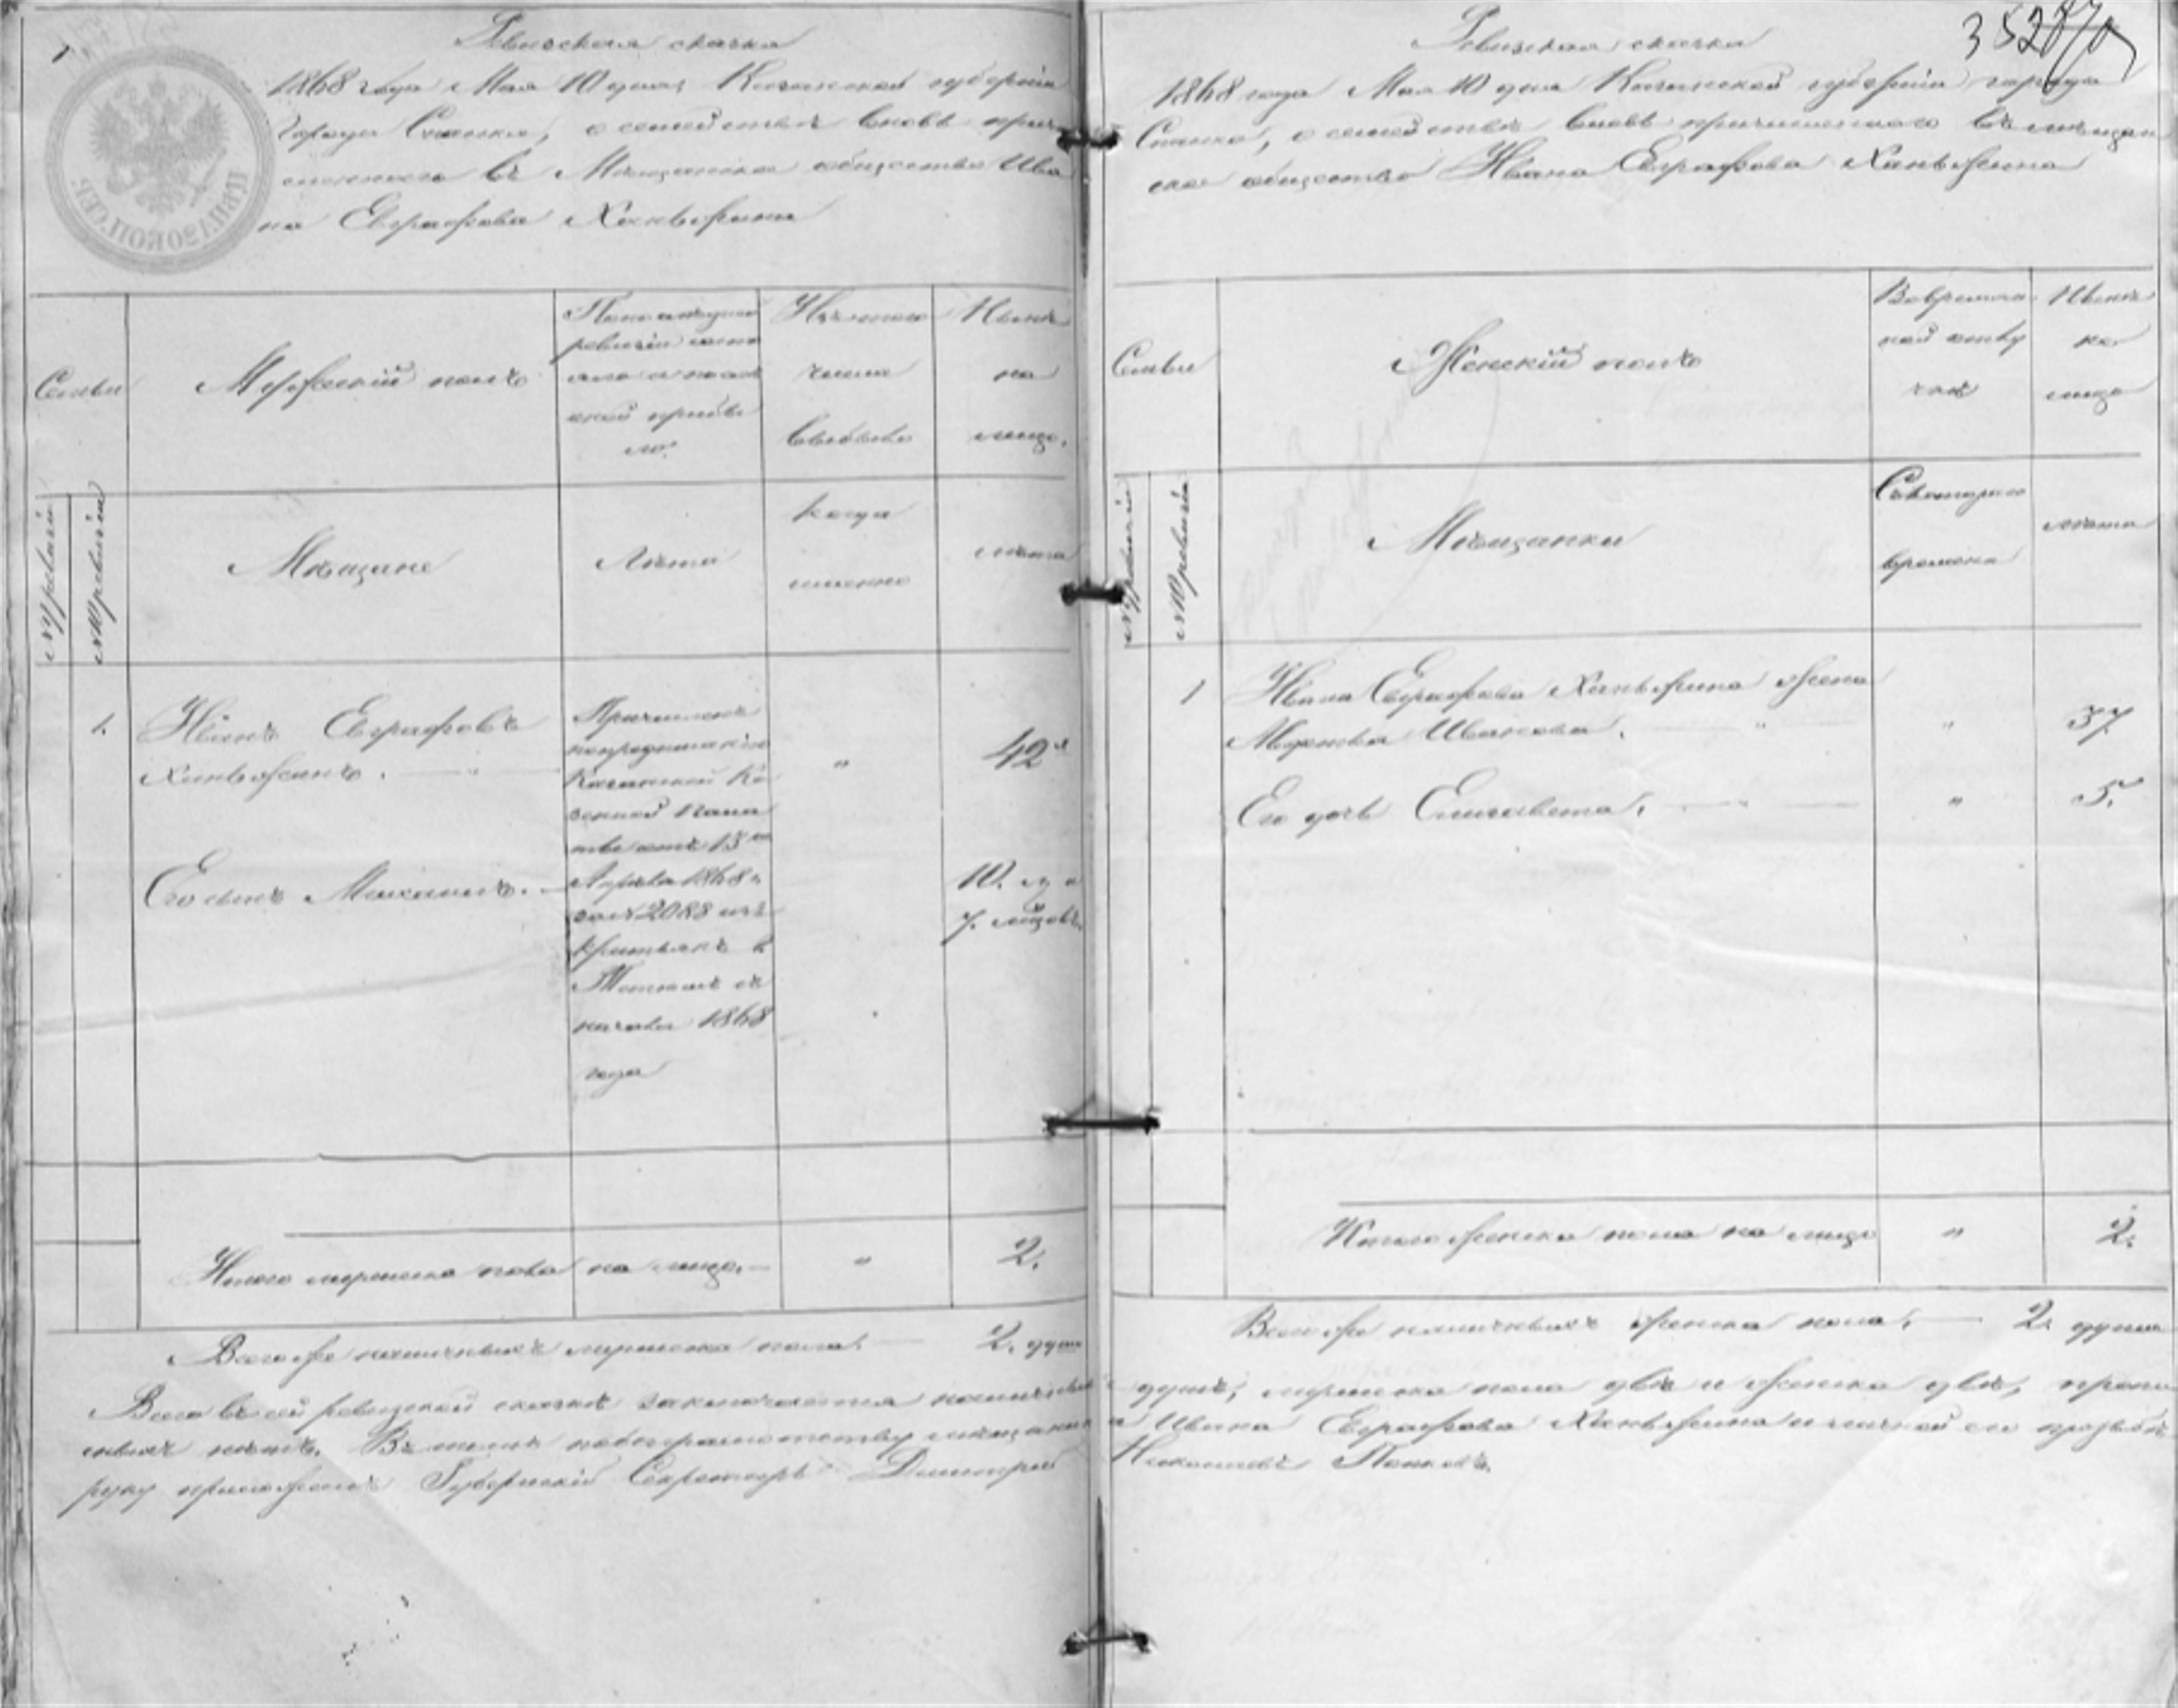 Ревизская сказка
1868 года Мая 10 дня, Казанской губернии
города Спаска, о семействе вновь причи
сленнаго въ Мещанское общество Ива
на Евграфова Ханьжина
Семьи
Мужескій полъ
По последней
ревизіи состо
яло и после
оной прибы
ло.
Изъ того
числа
выбыло
Ныне
на
лицо.
№ 9 ревизіи
№ 10 ревизіи
Мещане
Лета
когда
именно
лета
1.
Иванъ Евграфовъ
Ханьжинъ.
Его сынъ Михаилъ.
Причисленъ
по предписанію
Казанской Ка
зенной Пала
ты отъ 13го
Апреля 1868 г
за № 2088 изъ
крестьянъ с.
съ
начала 1868
года
"
42
10. и
7. месяцовъ
Итого мужеска пола на лицо.
"
2.
Всего же наличныхъ мужеска пола.
2. души
Ревизская сказка
352
1868 года Мая 10 дня Казанской губерніи города
Спаска, о семействе вновь причисленнаго въ мещан
ское общество Ивана Евграфова Ханьжина
Семьи
Женскій полъ
Во времен
ной отлу
чке
Ныне
на
лицо
№ 9 ревизіи
№ 10 ревизіи
Мещанки
Съ котораго
времени
лета
1
Ивана Евграфова Ханьжина жена
Ивановна.
"
37.
Его дочь Елизавета.
"
5.
Итого женска пола на лицо
"
2.
Всего же наличныхъ женска пола.
2. души
Всего въ сей ревизской сказке заключается наличныхъ душъ, мужеска пола две и женска две,
нетъ. Въ томъ по безграмотству мещанина Ивана Евграфова Ханьжина и личной его прозьбе
руку приложилъ Губернскій Секретарь Дмитрій Николаевъ Поповъ.